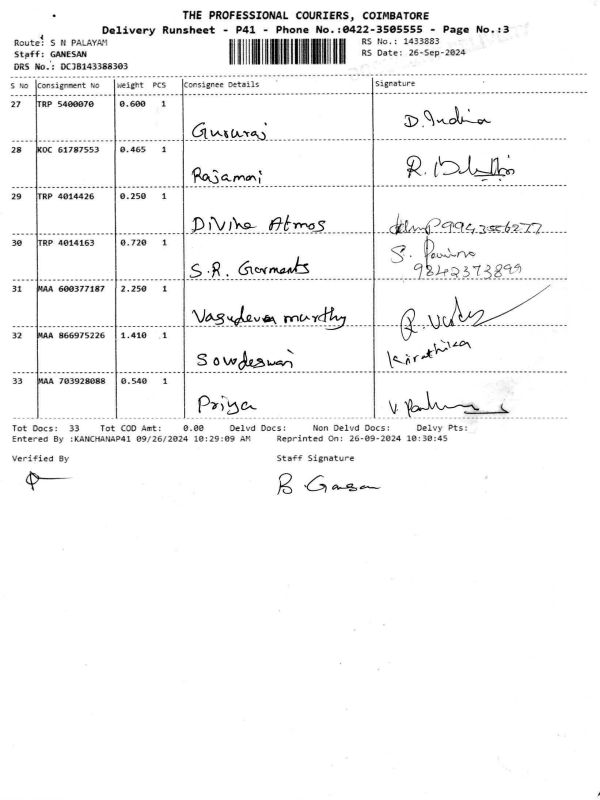 THE PROFESSIONAL COURIERS, COIMBATORE
Delivery Runsheet - P41 - Phone No.:0422-3505555 - Page No.:3
Route: S N PALAYAM RS No.: 1433883
Staff: GANESAN RS Date: 26-Sep-2024
DRS No.: DCJB143388303
S No Consignment No Weight PCS Consignee Details Signature
27 TRP 5400070 0.600 1 Gururaj D. Indira
28 KOC 61787553 0.465 1 Rajamani R.
29 TRP 4014426 0.250 1 Divine Atmos 9943556277
30 TRP 4014163 0.720 1 S.R. Garments S.
9842373899
31 MAA 600377187 2.250 1 Vasudeva murthy R.
32 MAA 866975226 1.410 1 Sowdeswari Kirathika
33 MAA 703928088 0.540 1 Priya V.
Tot Docs: 33 Tot COD Amt: 0.00 Delvd Docs: Non Delvd Docs: Delvy Pts:
Entered By :KANCHANAP41 09/26/2024 10:29:09 AM Reprinted On: 26-09-2024 10:30:45
Verified By Staff Signature
B Ganesan